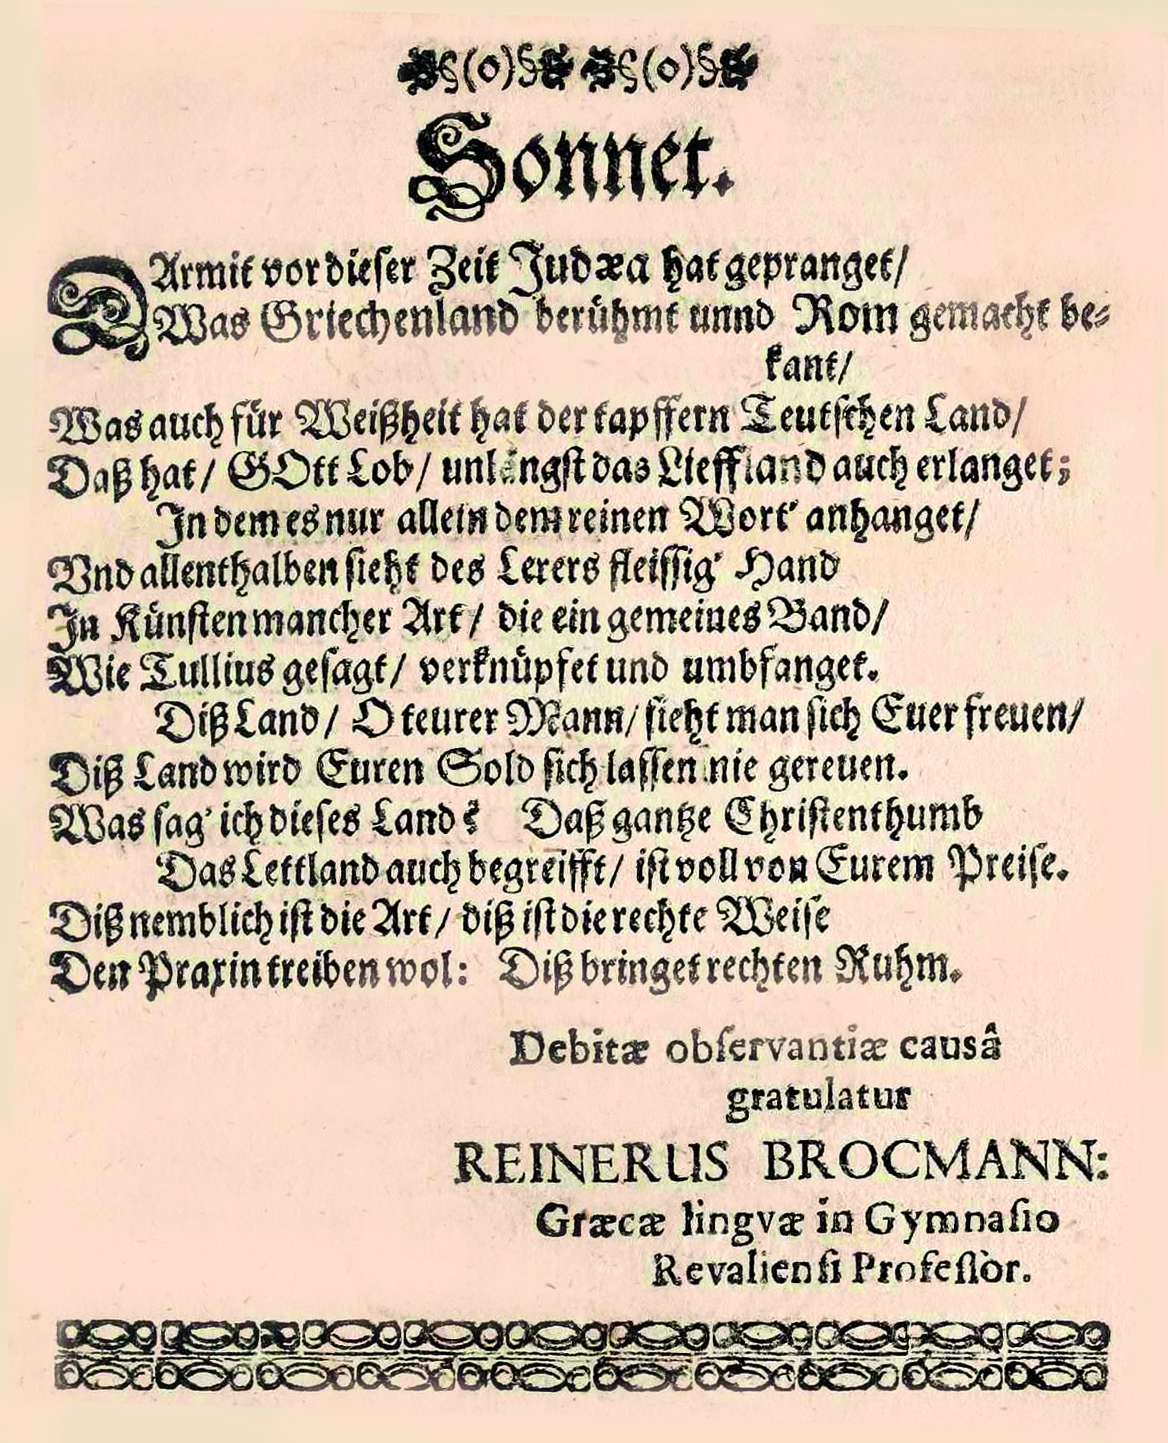 (o) (o)
Sonnet.
DArmit vor dieser Zeit Judæa hat gepranget/
Was Griechenland berühmt unnd Rom gemacht be-
kant/
Was auch für Weißheit hat der tapffern Teutschen Land/
Daß hat/ GOtt Lob/ unlängst das Lieffland auch erlanget;
In dem es nur allein dem reinen Wort' anhanget/
Vnd allenthalben sieht des Lerers fleissig' Hand
In Künsten mancher Art/ die ein gemeines Band/
Wie Tullius gesagt/ verknüpfet und umbfanget.
Diß Land/ O teurer Mann/ sieht man sich Euer freuen/
Diß Land wird Euren Sold sich lassen nie gereuen.
Was sag' ich dieses Land? Daß gantze Christenthumb
Das Lettland auch begreifft/ ist voll von Eurem Preise.
Diß nemblich ist die Art/ diß ist die rechte Weise
Den Praxin treiben wol: Diß bringet rechten Ruhm.
Debitæ observantiæ causâ
gratulatur
REINERUS BROCMANN:
Græcæ lingvæ in Gymnasio
Revaliensi Professor.